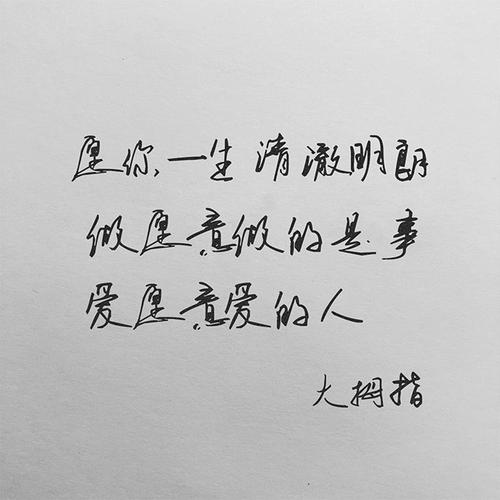 愿你一生清澈明朗
做愿意做的是事
爱愿意爱的人
大拇指